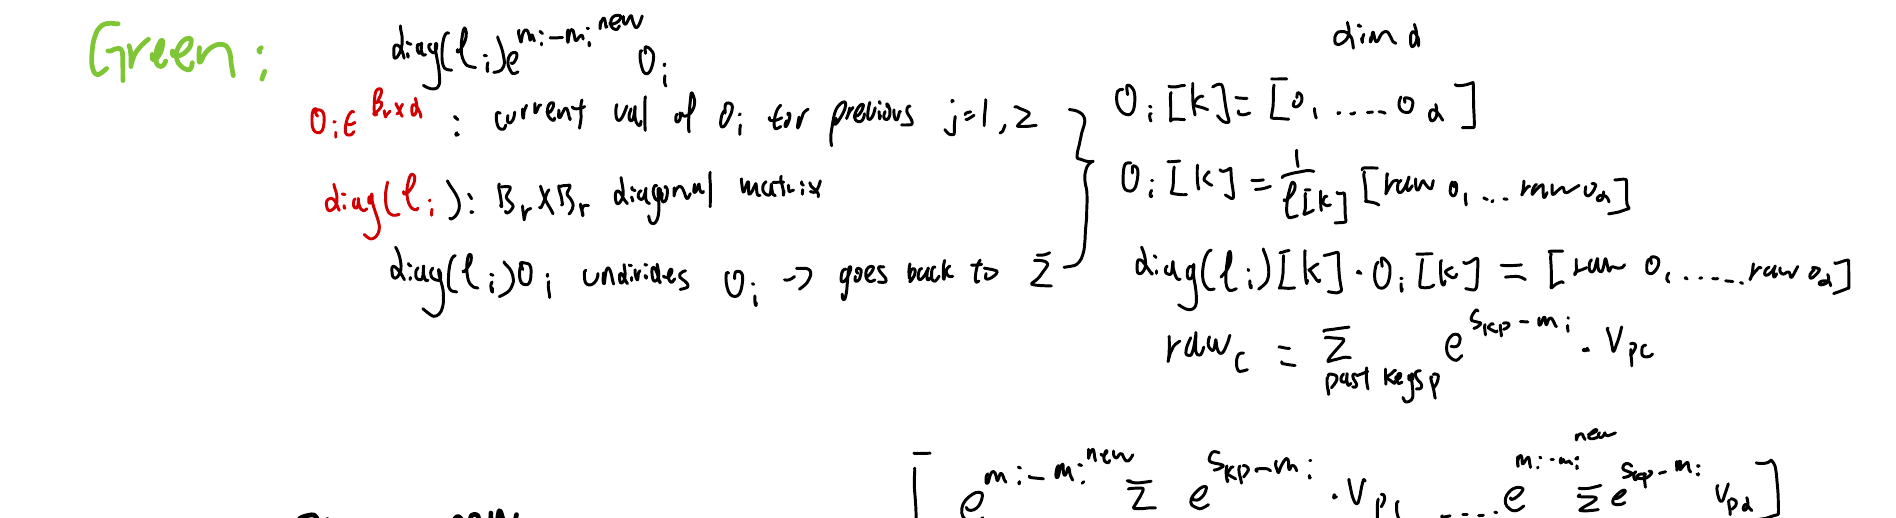 Green: diag(ℓᵢ)e^{mᵢ-mᵢ^{new}} Oᵢ
Oᵢ∈^{Br×d} : current val of Oᵢ for previous j=1,2
diag(ℓᵢ): Br×Br diagonal matrix
diag(ℓᵢ)Oᵢ undivides Oᵢ → goes back to Σ
dim d
Oᵢ[k] = [o₁ ..... o_d]
Oᵢ[k] = 1/ℓ[k] [raw o₁ ... raw o_d]
diag(ℓᵢ)[k]·Oᵢ[k] = [raw o₁ ...... raw o_d]
raw_c = Σ_{past keys p} e^{S_{kp}-mᵢ} · V_{pc}
[e^{mᵢ-mᵢ^{new}} Σ e^{S_{kp}-mᵢ} · V_{p1} ..... e^{mᵢ-mᵢ^{new}} Σ e^{S_{kp}-mᵢ} V_{pd}]